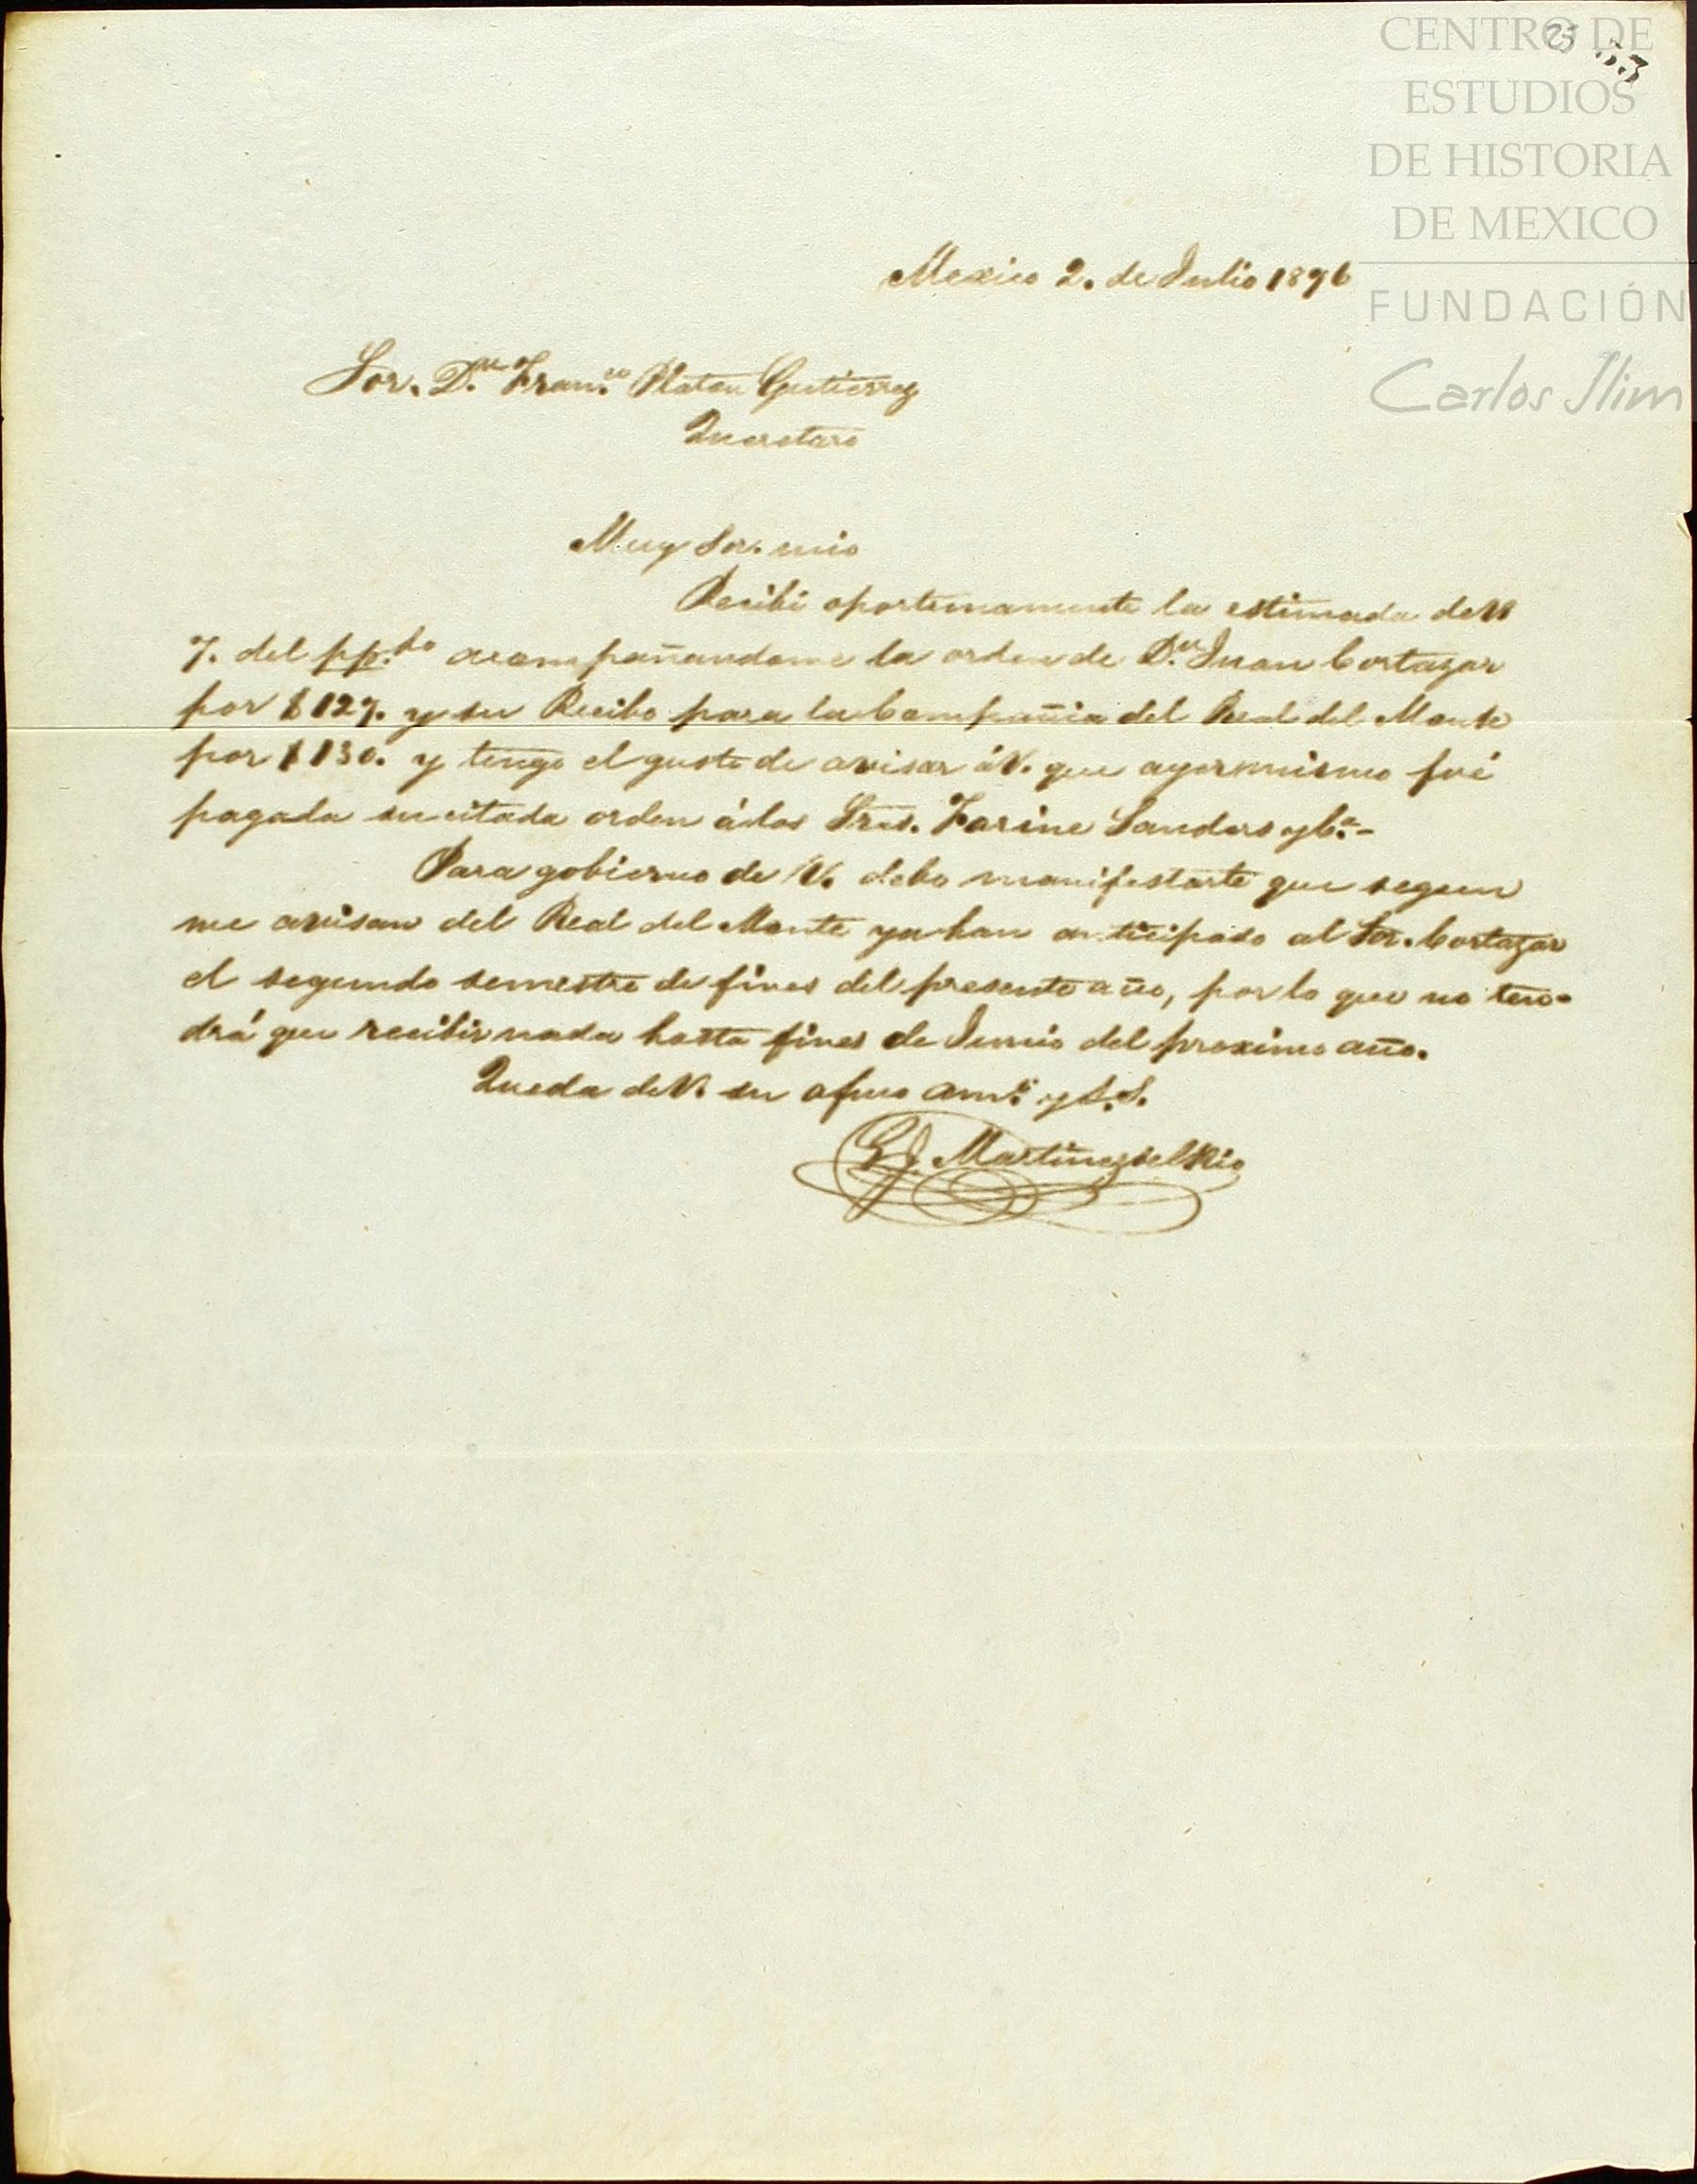 CENTRO DE
ESTUDIOS
DE HISTORIA
DE MEXICO
FUNDACIÓN
Carlos Slim
53
Mexico 2. de Julio 1896
Sor. Dn. Franco. Platon Gutierrez
Queretaro
Muy Sor. mio
Recibi oportunamente la estimada de V
7. del pp.do acompañandome la orden de Dn. Juan Cortazar
por $ 127. y su Recibo para la Compañia del Real del Monte
por $ 130. y tengo el gusto de avisar á V. que ayer mismo fué
pagada su citada orden á los Sres. Farine Sanders y Ca.-
Para gobierno de V. debo manifestarle que segun
me avisan del Real del Monte ya han anticipado al Sor. Cortazar
el segundo semestre de fines del presente año, por lo que no ten-
drá que recibir nada hasta fines de Junio del proximo año.
Queda de V. su afmo amo. y S.S.
Martinez del Rio